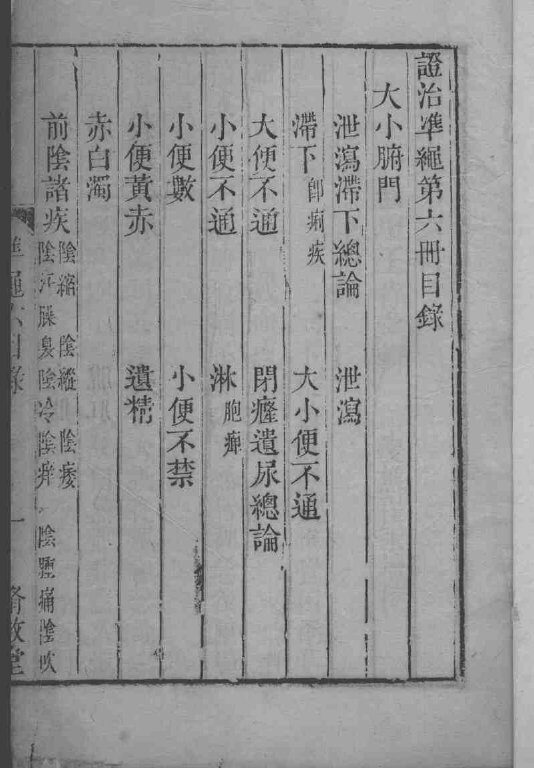 證治準繩第六冊目錄
大小腑門
泄瀉滯下總論 泄瀉
滯下即痢疾 大小便不通
大便不通 閉癃遺尿總論
小便不通 淋胞痺
小便數 小便不禁
小便黃赤 遺精
赤白濁
前陰諸疾陰縮 陰縱 陰痿 陰汗臊臭陰冷陰痒 陰腫痛陰吹
準繩六目錄 一 脩敬堂